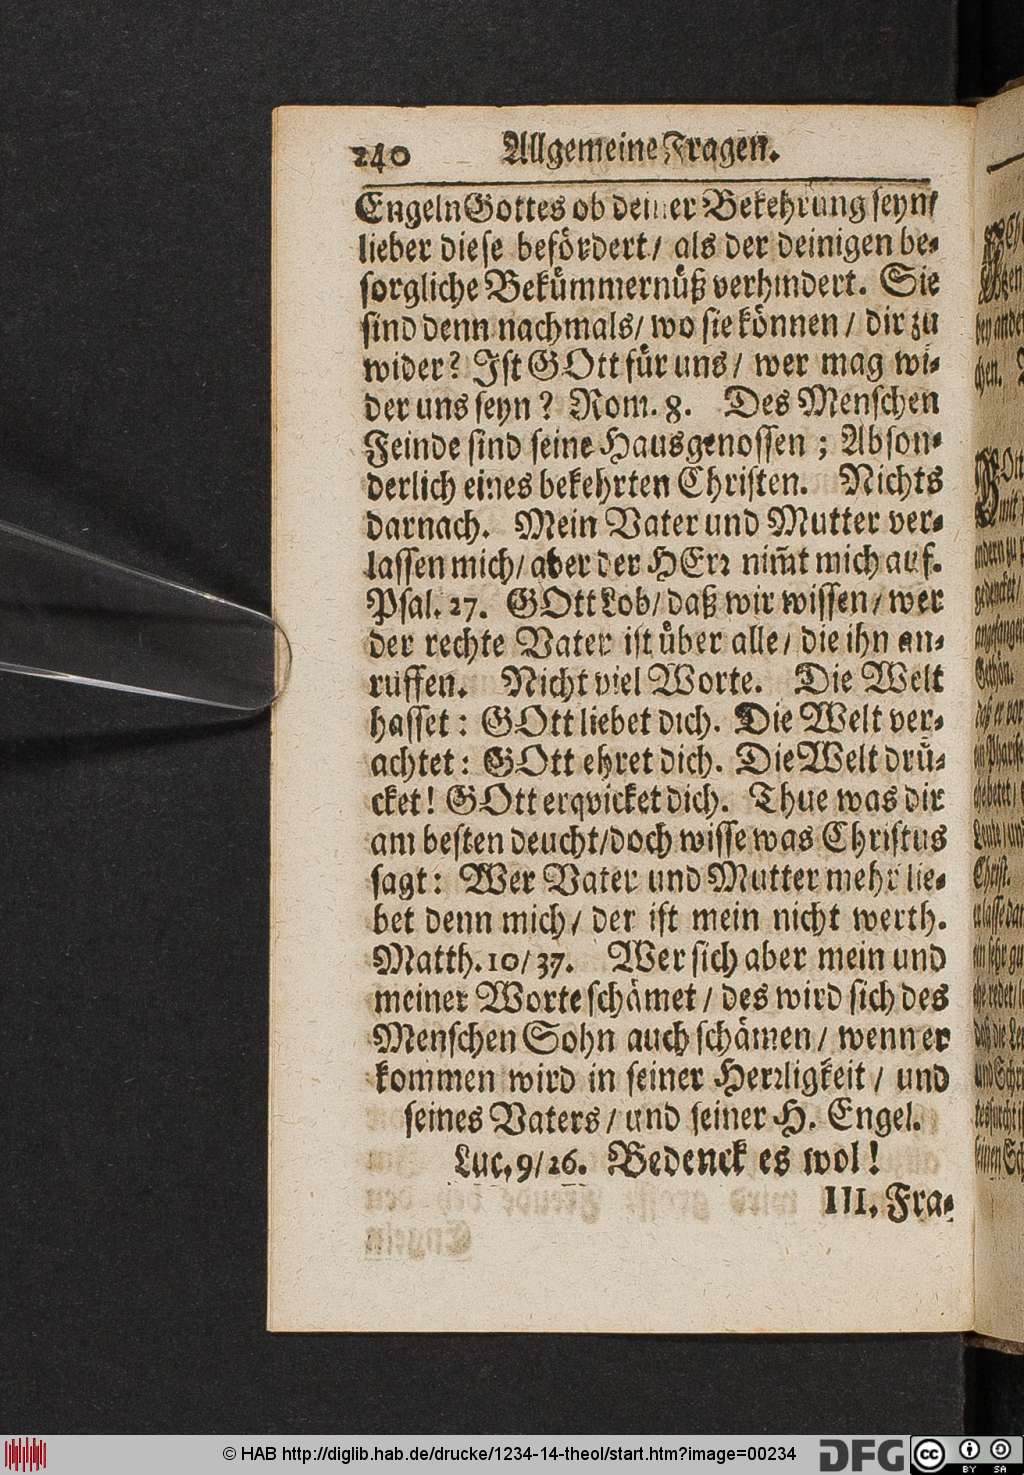 240 Allgemeine Fragen.
Engeln Gottes ob deiner Bekehrung seyn/
lieber diese befördert/ als der deinigen be-
sorgliche Bekümmernüß verhindert. Sie
sind denn nachmals/ wo sie können / dir zu
wider? Ist GOtt für uns/ wer mag wi-
der uns seyn? Rom. 8. Des Menschen
Feinde sind seine Hausgenossen ; Abson-
derlich eines bekehrten Christen. Nichts
darnach. Mein Vater und Mutter ver-
lassen mich/ aber der HErr nim̃t mich auf.
Psal. 27. GOtt Lob/ daß wir wissen/ wer
der rechte Vater ist über alle/ die ihn an-
ruffen. Nicht viel Worte. Die Welt
hasset: GOtt liebet dich. Die Welt ver-
achtet: GOtt ehret dich. Die Welt drü-
cket! GOtt erqvicket dich. Thue was dir
am besten deucht/doch wisse was Christus
sagt: Wer Vater und Mutter mehr lie-
bet denn mich/ der ist mein nicht werth.
Matth. 10/ 37. Wer sich aber mein und
meiner Worte schämet / des wird sich des
Menschen Sohn auch schämen/ wenn er
kommen wird in seiner Herrligkeit / und
seines Vaters/ und seiner H. Engel.
Luc. 9/26. Bedenck es wol!
III. Fra-
© HAB http://diglib.hab.de/drucke/1234-14-theol/start.htm?image=00234
DFG
cc BY SA